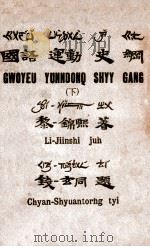 國語 運動 史 綱
GWOYEU YUNNDONQ SHYY GANG
(下)
黎 錦熙 著
Li-Jiinshi juh
錢 玄同 題
Chyan-Shyuantorng tyi